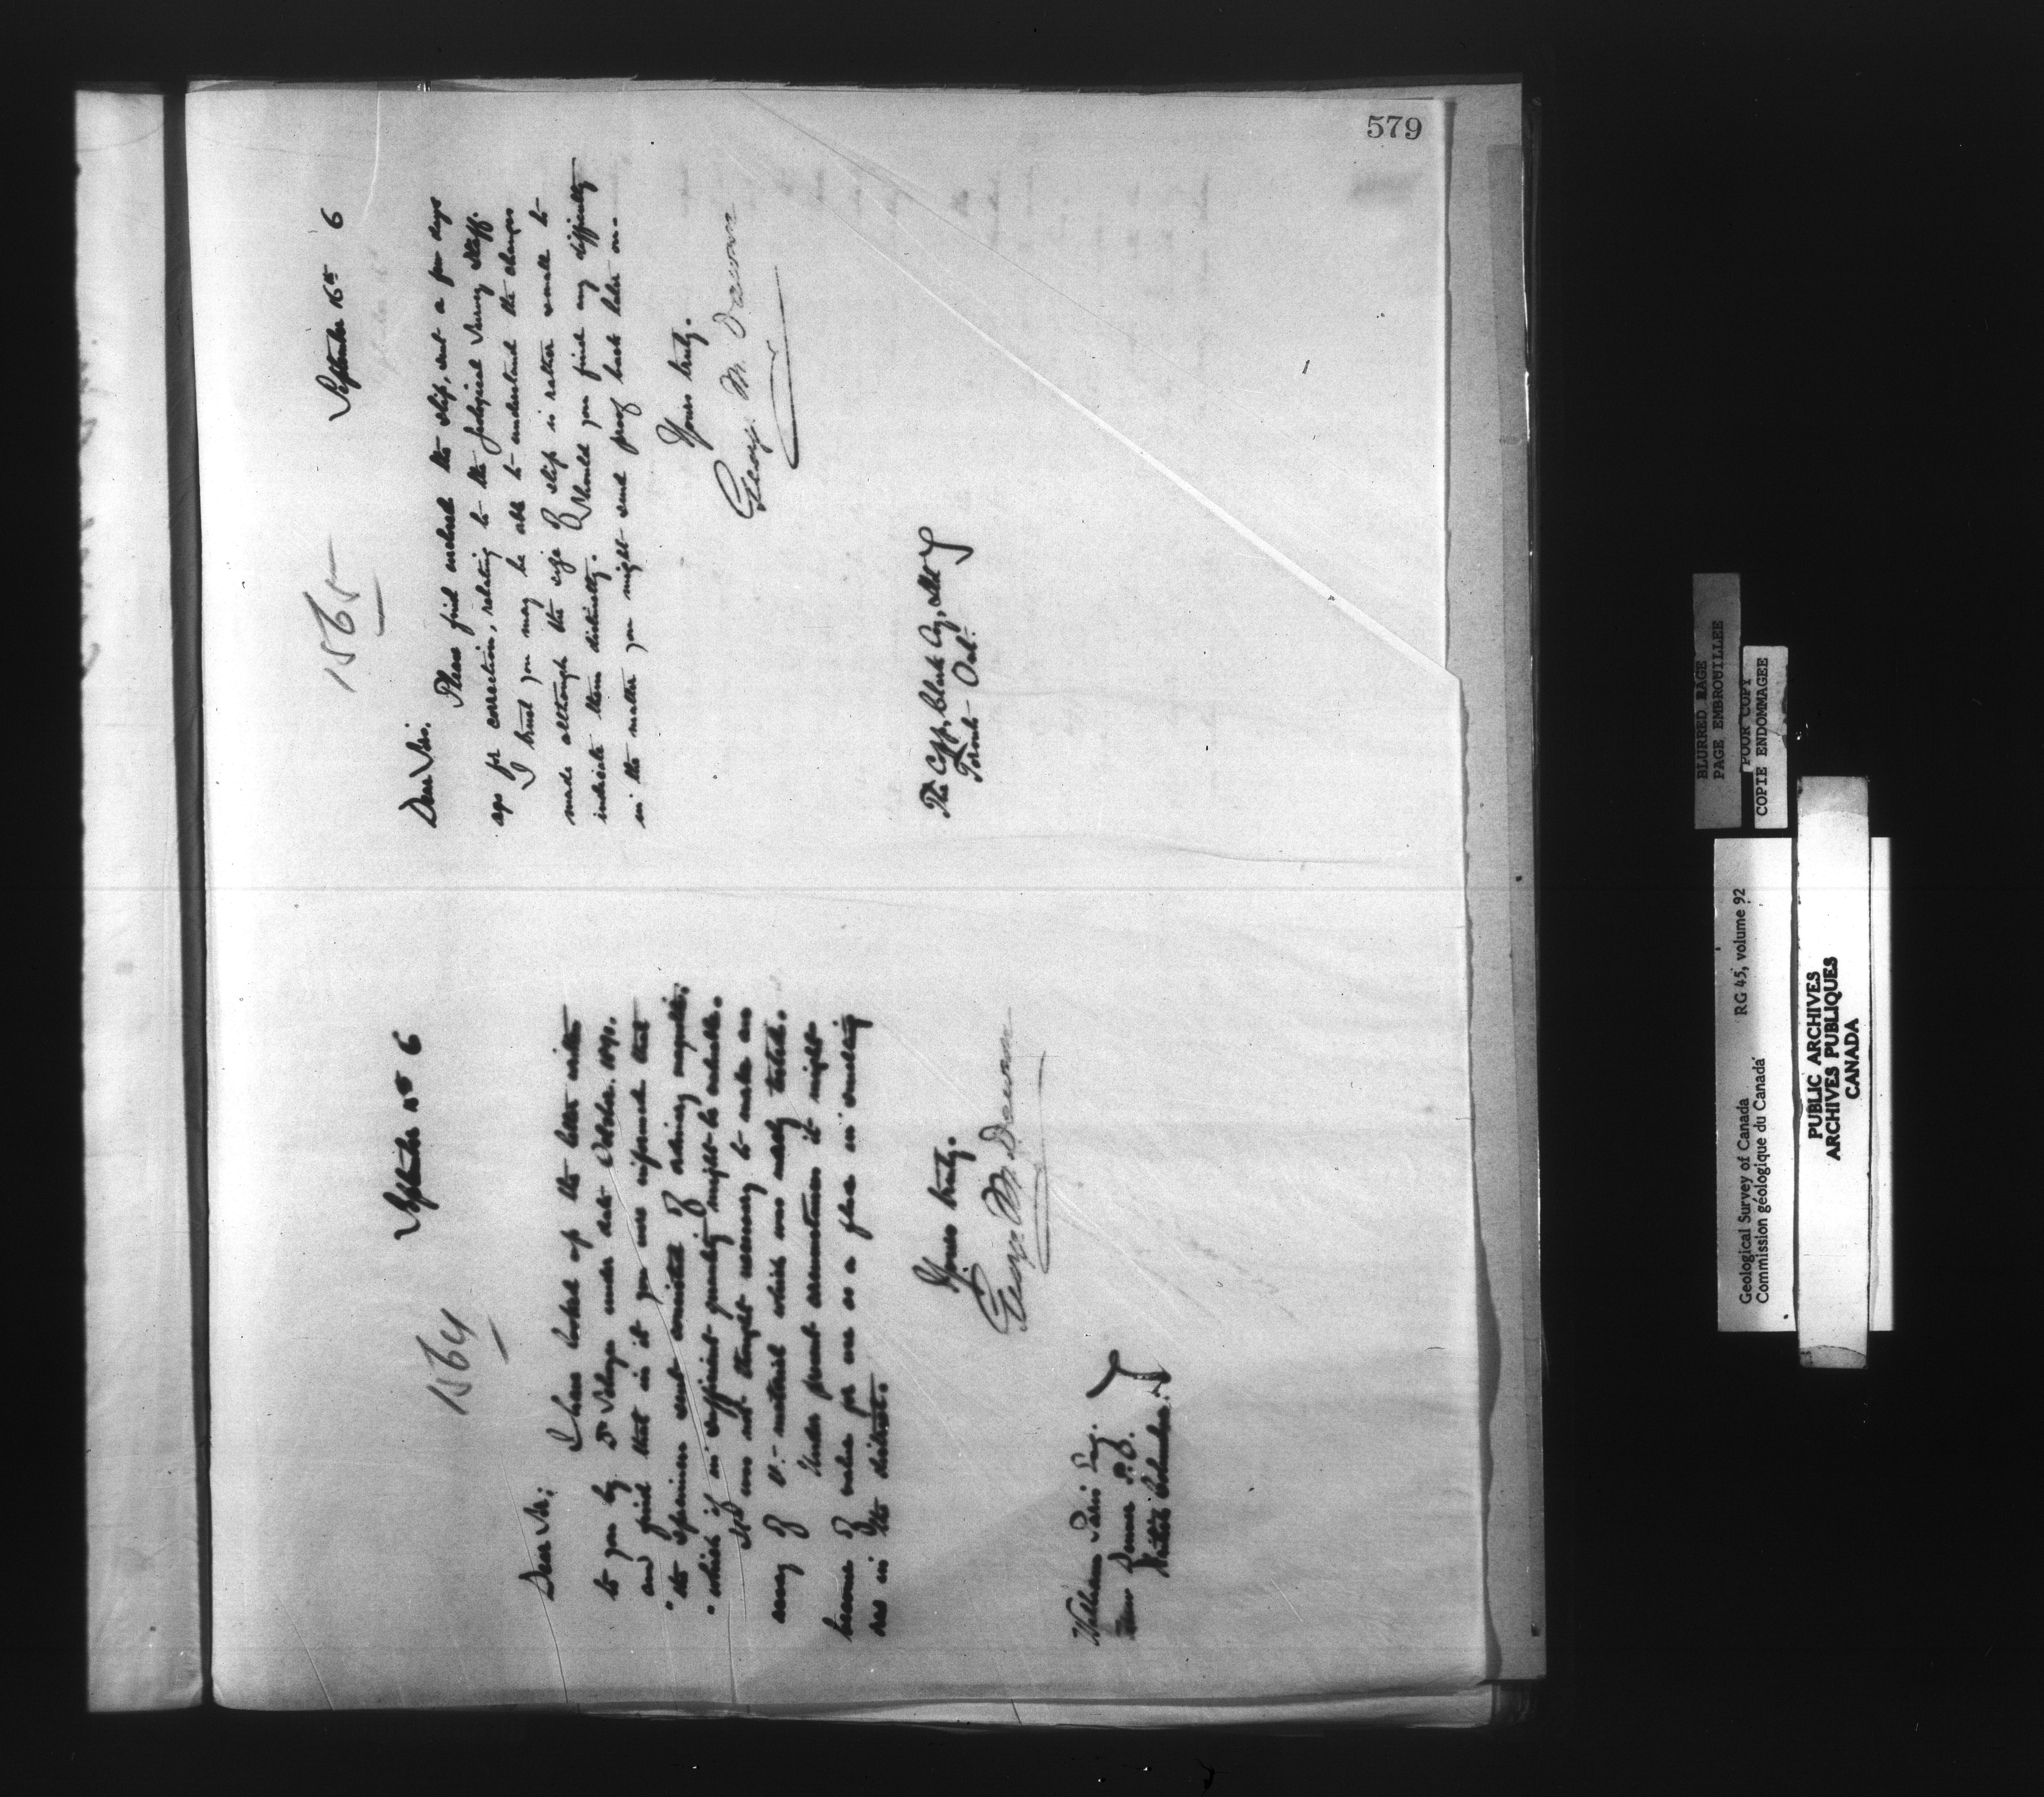 579
1564
September 15th 6
Dear Sir;
I have looked up the letter written
to you by Dr Selwyn under date October. 1890.
and find that in it you were informed that
"the specimen sent consisted of ordinary magnetite,
"which if in sufficient quantity might be valuable.
It was not thought necessary to make an
assay of it. - material which was rarely tested.
Under present circumstances it might
become of value for use as a flux in smelling
ores in the district.
Yours truly.
George M. Dawson
William
New Denver P.O.
British Columbia.
1565
September 16th 6
Dear Sir.
Please find enclosed the slip, sent a few days
ago for correction, relating to the Geological Survey Staff.
I trust you may be able to understand the changes
made although the size of slip is rather small to
indicate them distinctly. Should you find any difficulty
in the matter you might send proof back later on.
Yours truly.
George M. Dawson
The Copp, Clark Coy, Ltd
Toronto Ont.
BLURRED PAGE
PAGE EMBROUILLEE
POOR COPY
COPIE ENDOMMAGEE
Geological Survey of Canada RG 45, volume 92
Commission géologique du Canada
PUBLIC ARCHIVES
ARCHIVES PUBLIQUES
CANADA